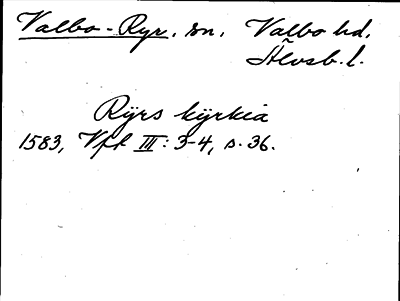 Valbo-Ryr, sn, Valbo hd,
Älvsb. l.
Rÿrs kÿrkia
1583, Vft III: 3-4, s. 36.